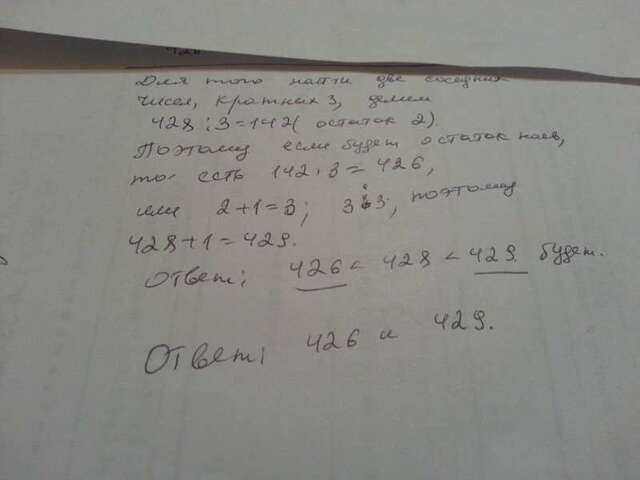 Для того найти две соседних
чисел, кратных 3, делим
428 : 3 = 142( остаток 2)
Поэтому если будет остаток
то есть 142 · 3 = 426,
или 2 + 1 = 3; 3⋮3, поэтому
428 + 1 = 429.
Ответ: 426 < 428 < 429 будет.
Ответ: 426 и 429.